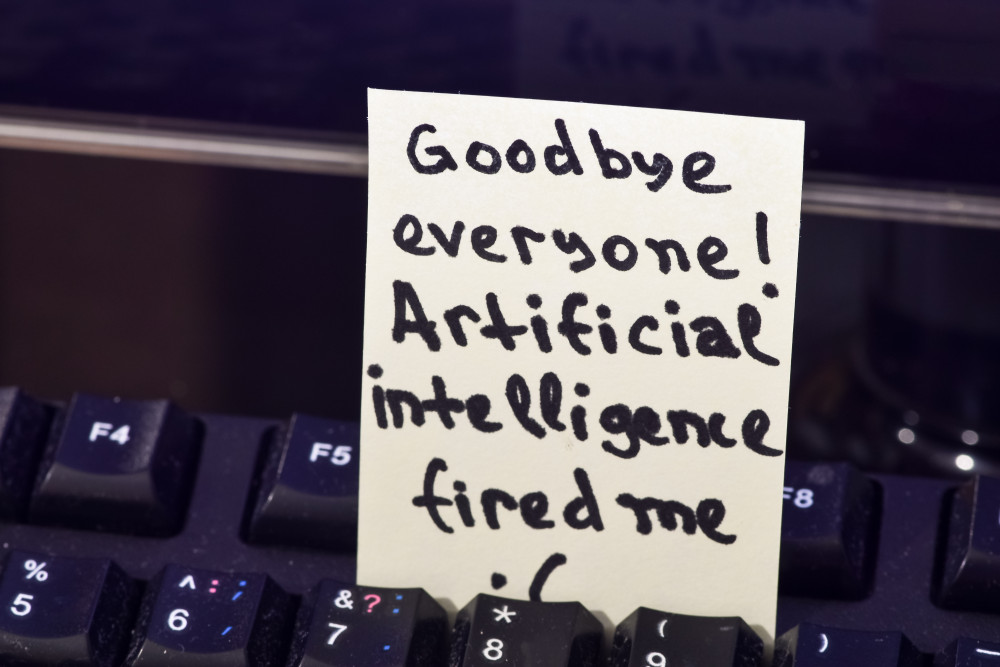 Goodbye
everyone!
Artificial
intelligence
fired me
:(
F4 F5 F8
% ^ : ; & ? : * ( )
5 6 , 7 . 8 9